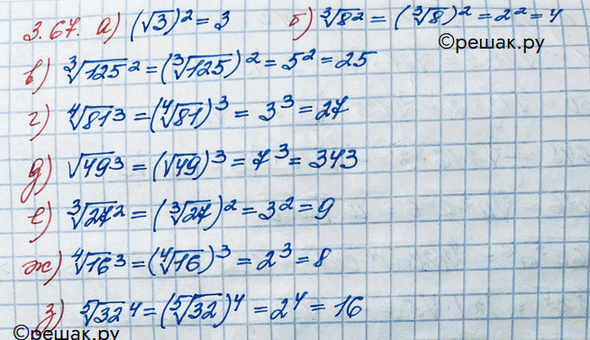 3.67. а) (√3)² = 3 б) ∛8² = (∛8)² = 2² = 4
©решак.ру
в) ∛125² = (∛125)² = 5² = 25
г) ∜81³ = (∜81)³ = 3³ = 27
д) √49³ = (√49)³ = 7³ = 343
е) ∛27² = (∛27)² = 3² = 9
ж) ∜16³ = (∜16)³ = 2³ = 8
з) ⁵√32⁴ = (⁵√32)⁴ = 2⁴ = 16
©решак.ру